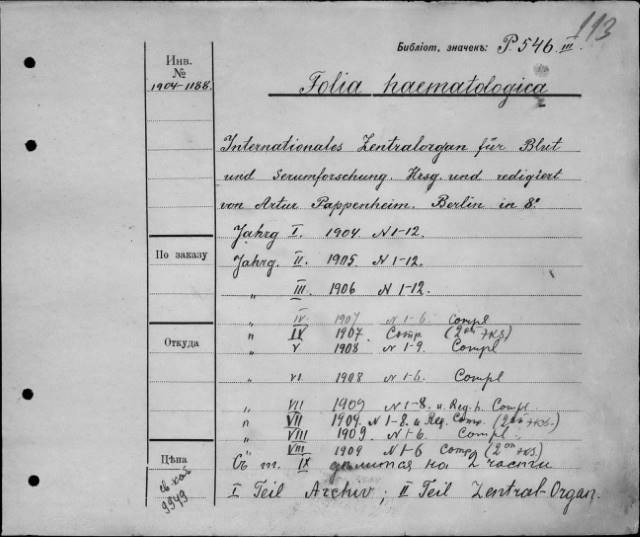 113
Библіот. значекъ: P 546 III.
Инв.
№
1904-1188.
Folia haematologica
Internationales Zentralorgan für Blut
und Serumforschung. Hrsg. und redigiert
von Artur Pappenheim. Berlin in 8°
Jahrg I. 1904 N 1-12.
По заказу
Jahrg. II. 1905 N 1-12.
„ III. 1906 N 1-12.
„ IV. 1907 N 1-6 Compl
„ IV 1907. Comp (2ой экз)
Откуда
„ V 1908 N 1-9. Compl
„ VI 1908 N 1-6. Compl
„ VII 1909 N 1-8. u. Reg. h. Compl.
„ VII 1909. N 1-8. u Reg. Comp. (2ой экз.
„ VIII 1909. N 1-6 Compl.
„ VIII 1909 N 1-6 Comp (2ой экз)
Цѣна
Съ т. IX делится на 2 части
I Teil Archiv; II Teil Zentral-Organ.
9949